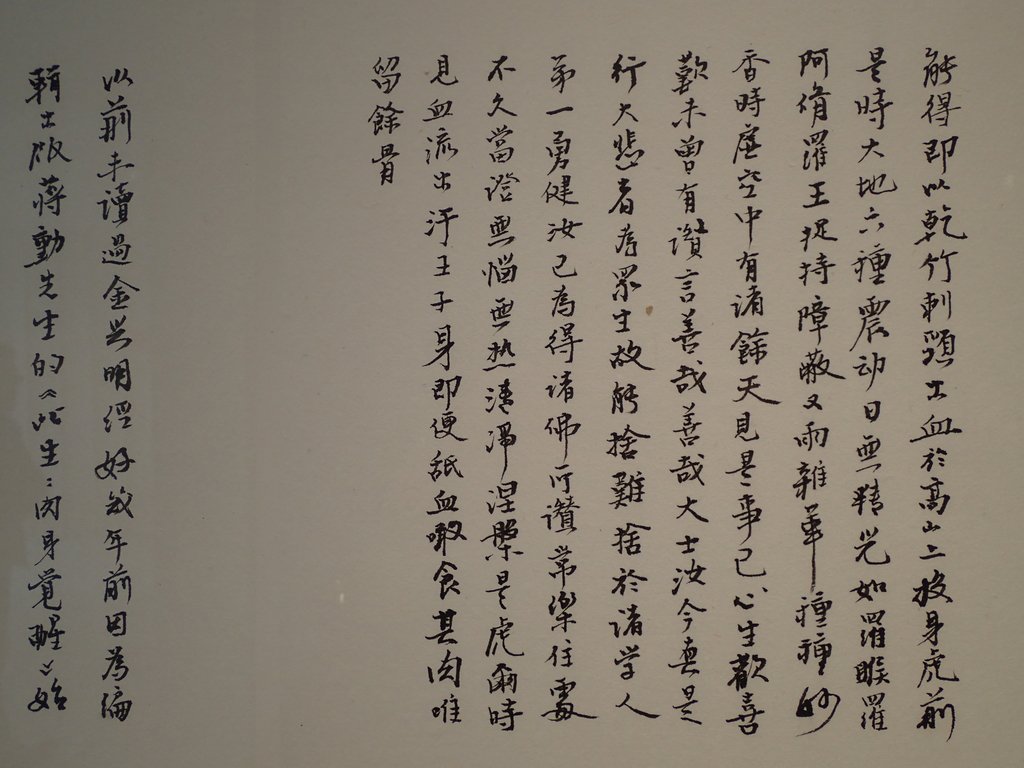 能得即以乾竹刺頸出血於高山上投身虎前
是時大地六種震动日無精光如羅睺羅
阿脩羅王捉持障蔽又雨雜華種種妙
香時虛空中有諸餘天見是事已心生歡喜
歎未曾有讚言善哉善哉大士汝今真是
行大悲者為眾生故能捨難捨於諸学人
第一勇健汝已為得諸佛所讚常樂住處
不久當證無惱無热清涼涅槃是虎爾時
見血流出汙王子身即便舐血噉食其肉唯
留餘骨
以前未讀過金光明經好幾年前因為編
輯出版蔣勳先生的《此生：肉身覺醒》始